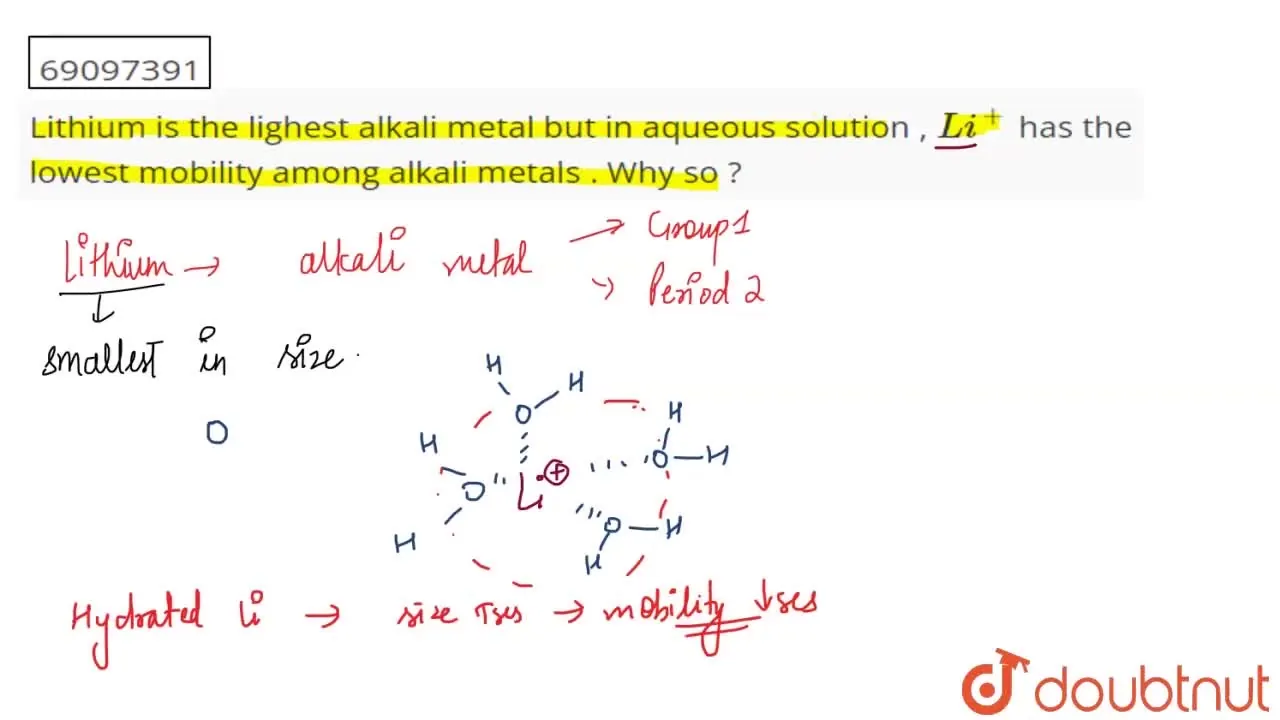 69097391
Lithium is the lighest alkali metal but in aqueous solution , Li⁺ has the
lowest mobility among alkali metals . Why so ?
Lithium → alkali metal → Group 1
→ Period 2
↓
smallest in size .
O
H
H
O
H
O
H
H
O
H
Li ⊕
O
H
H
Hydrated Li → size ↑ses → mobility ↓ses
doubtnut